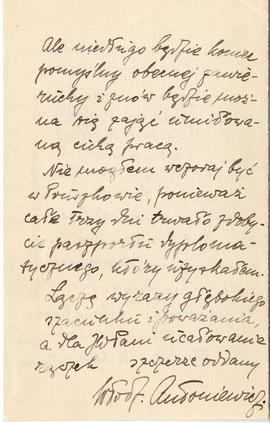 Ale niedługo będzie koniec
pomyślny obecnej zawie-
ruchy i znów będzie moż-
na się zająć umiłowa-
ną cichą pracą.
Nie mogłem wczoraj być
w Pruszkowie, ponieważ
całe trzy dni trwało zdoby-
cie paszportu dyploma-
tycznego, który uzyskałem.
Łączę wyrazy głębokiego
szacunku i poważania,
a dla Pani ucałowania
rączek szczerze oddany
Włodz. Antoniewicz.